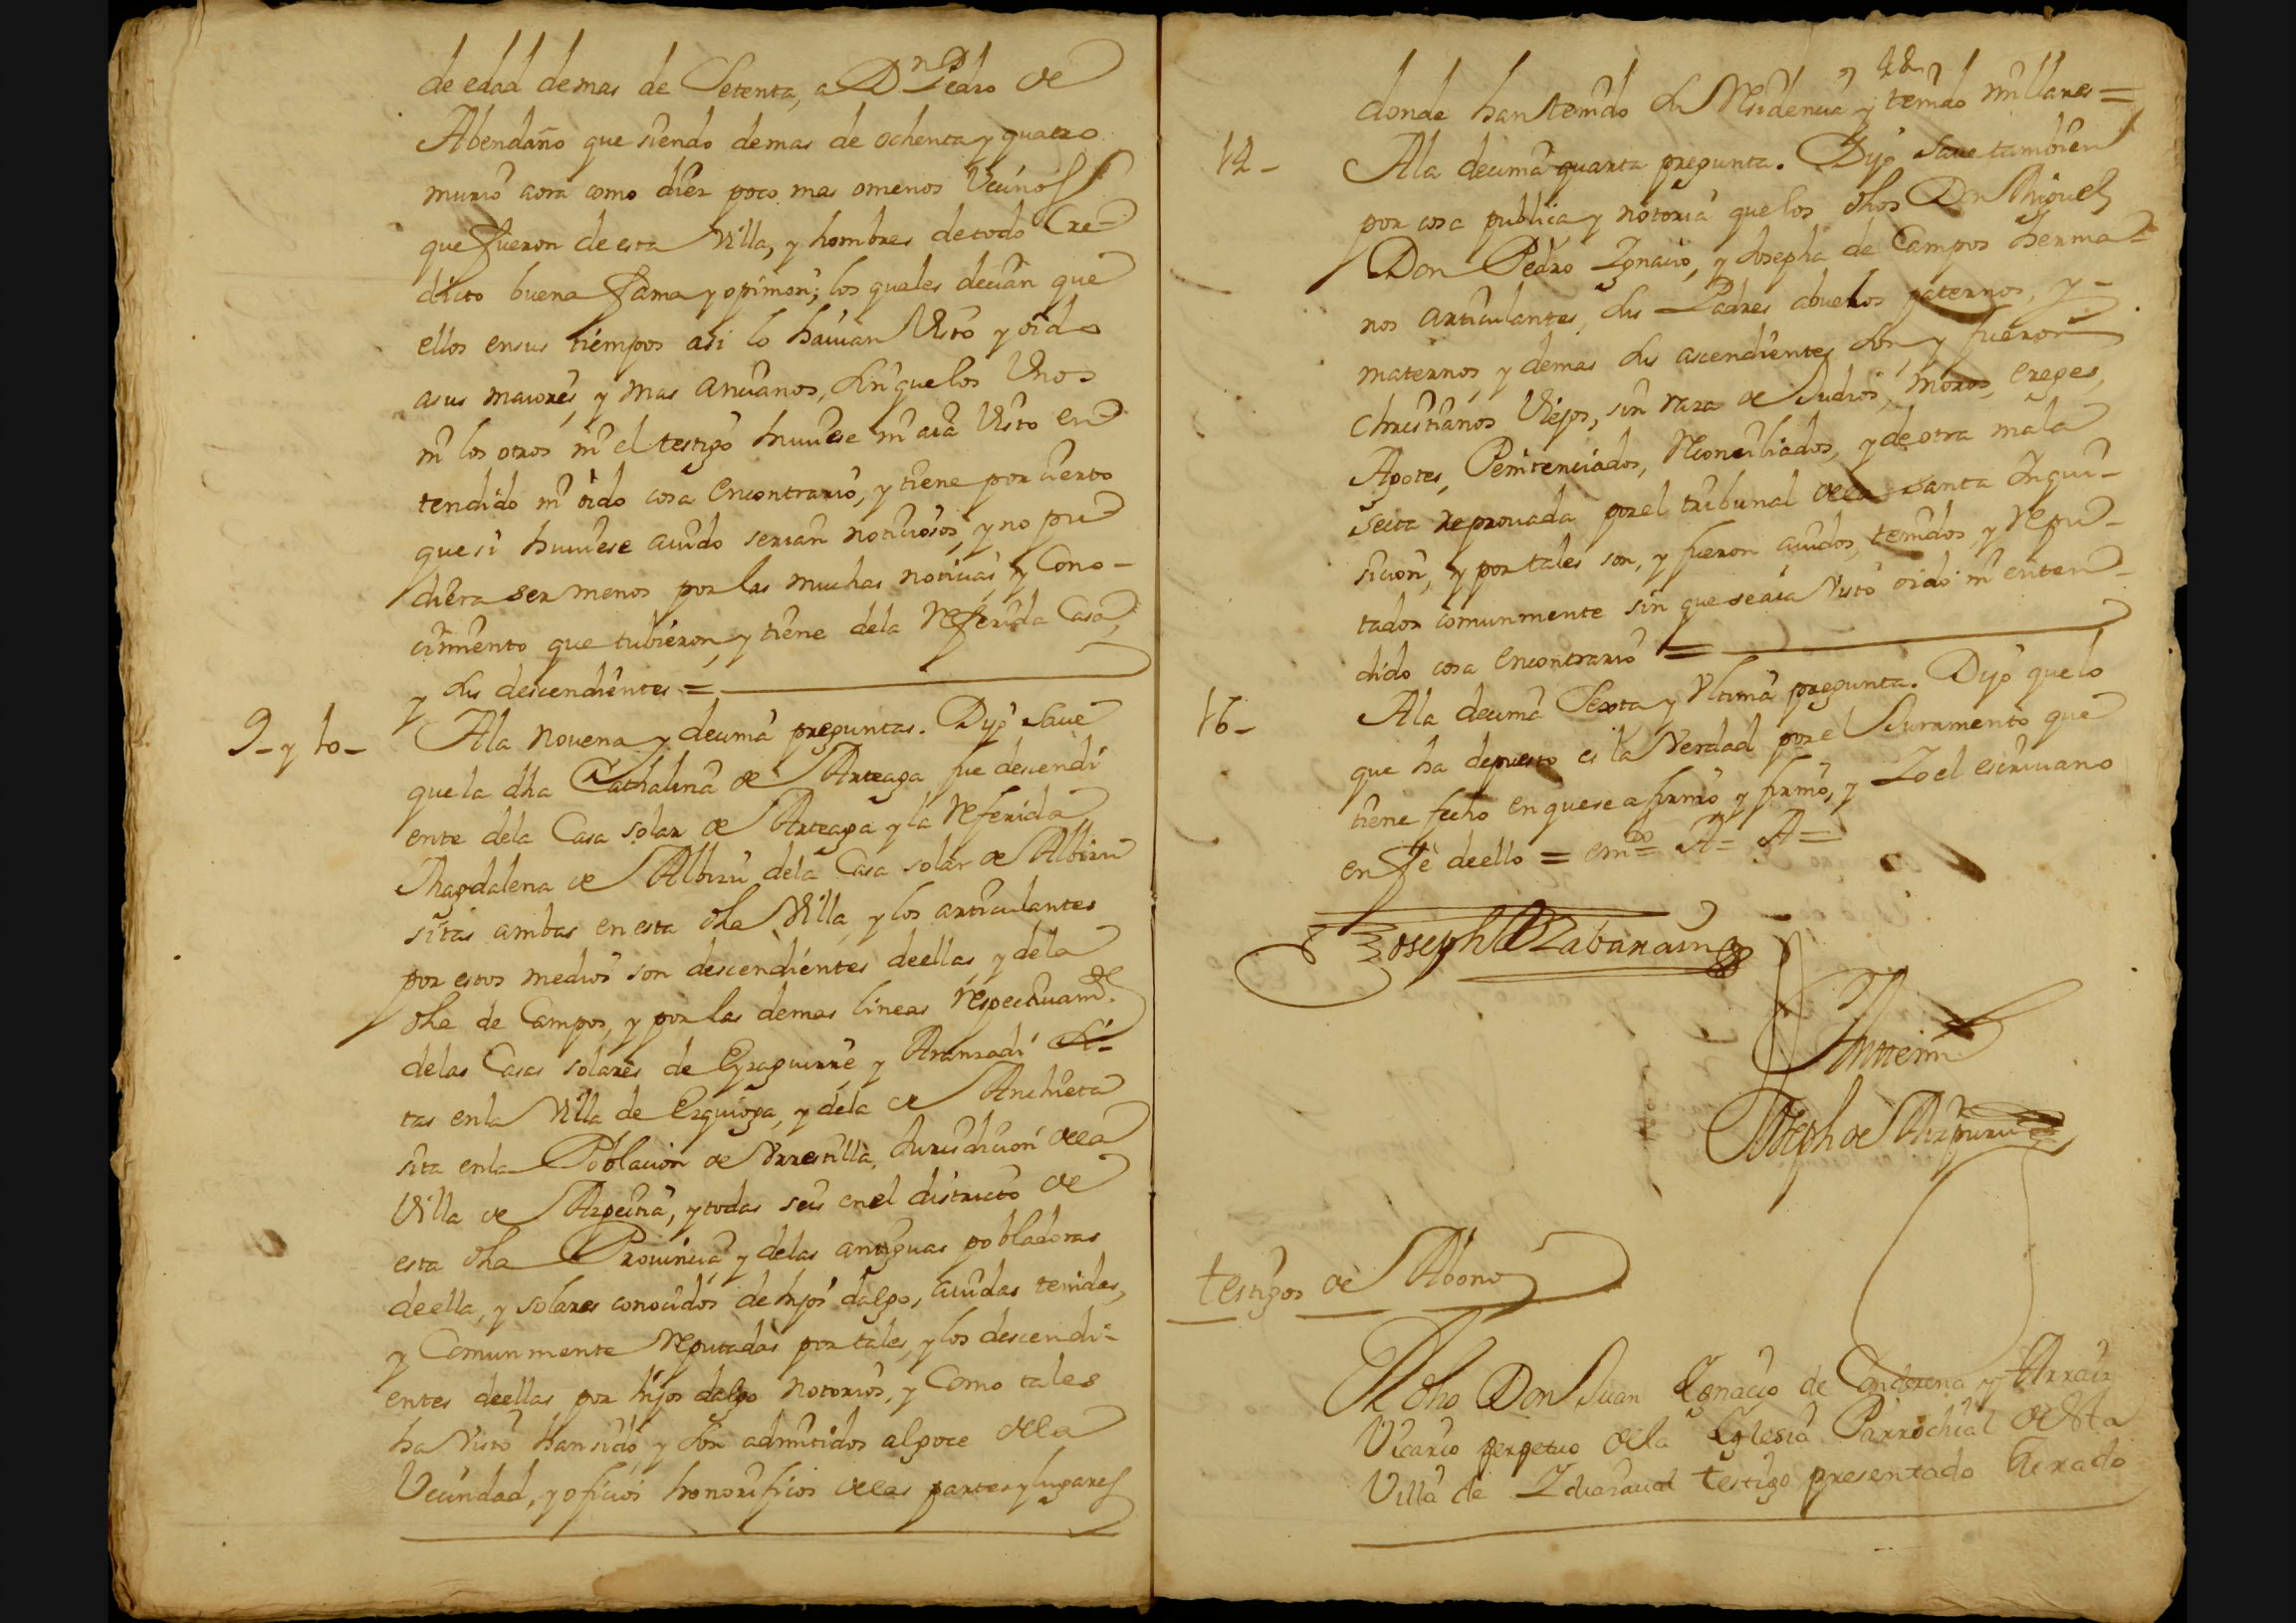 de edad demas de Setenta, a Dn Pedro de
Abendaño que siendo demas de ochenta y quatro
murio aora como diez poco mas omenos Vecinos
que fueron de esta Villa, y hombres detodo Cre-
dito buena fama y opinion; los quales decian que
ellos ensus tiempos asi lo havian Visto y oido
asus maiores, y mas ancianos, sin que los Unos
ni los otros ni el testigo huviese ni aia Visto en
tendido ni oido cosa Encontrario, y tiene por cierto
que si huviese avido serian noticiosos, y no pu
diera ser menos por las muchas noticias y Cono-
cimiento que tubieron, y tiene dela Referida Casa,
y sus descendientes =
9- y 10- Ala novena y decima preguntas. Dijo Save
que la dha Cathalina de Arteaga fue descendi
ente dela Casa solar de Arteaga y la Referida
Magdalena de Albizu dela Casa solar de Albizu
sitas ambas en esta dha Villa, y los articulantes
por estos medios son descendientes deellas, y dela
dha de Campos, y por las demas lineas respectivamte.
delas Casas solares de Eyzaguirre y Aranzadi Si-
tas enla Villa de Ezquioga, y dela de Anchieta
sita enla Poblacion de Urrestilla, Jurisdicion dela
Villa de Azpeitia, y todas seis enel districto de
esta dha Provincia y delas antiguas pobladoras
deella, y solares conocidos de hijos dalgo, avidas tenidas,
y Comunmente Reputadas por tales, y los descendi-
entes deellas por hijos dalgo notorios, y Como tales
ha Visto han sido, y son admitidos algoce dela
Vecindad, y oficios honorificos delas partes y lugares
48
donde han tenido su Residencia y tenido millares =
14- Ala decima quarta pregunta. Dijo save tambien
por cosa publica, y notoria que los dhos Don Miguel,
Don Pedro Ignacio, y Josepha de Campos herma-
nos articulantes, sus Padres abuelos paternos, y-
maternos, y demas sus ascendientes son y fueron
Christianos Viejos, sin raza de Judios, moros, ereges,
Agotes, Penitenciados, Reconciliados, y de otra mala
secta reprouada por el tribunal dela santa Inqui-
sicion, y por tales son, y fueron avidos, tenidos, y Repu-
tados comunmente sin que seaia Visto oido ni enten-
dido cosa Encontrario =
16- Ala decima Sexta y Ultima pregunta. Dijo que lo
que ha depuesto es la Verdad por el Juramento que
tiene fecho en que se afirmo y firmo, y Yo el escrivano
en fe deello = emdo = A = A =
Joseph
Antemi
Joseph de Aizpuru
testigos de Abono
El dho Don Juan Ignacio de
Vicario perpetuo dela Iglesia Parrochial desta
Villa de testigo presentado